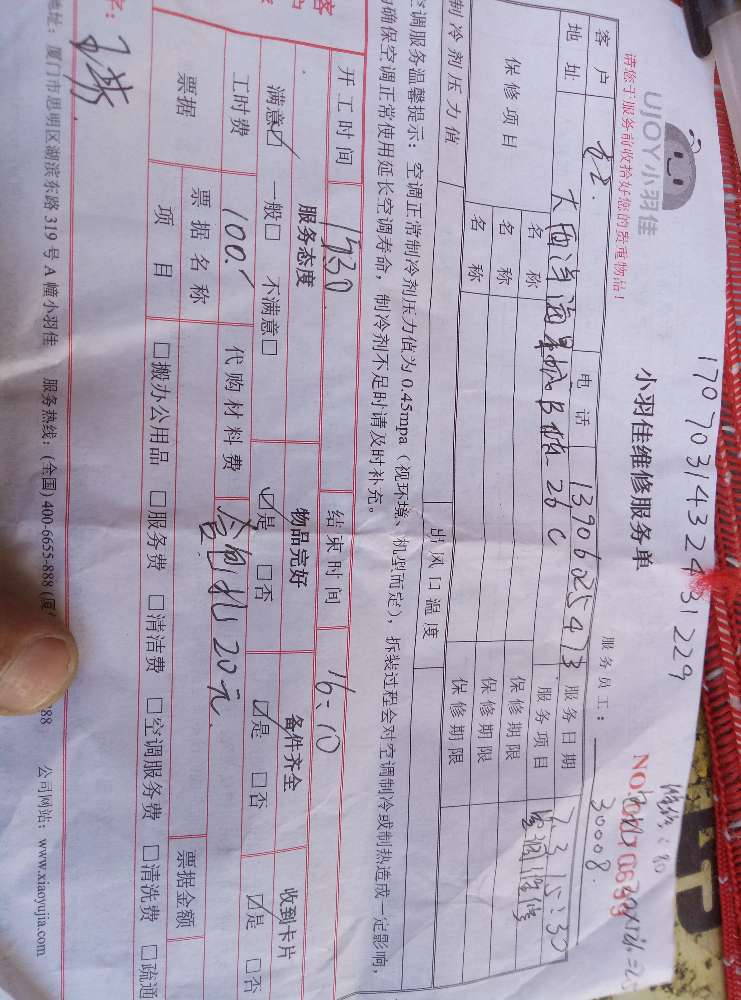 17070314324931229
请您于服务前收拾好您的贵重物品!
UJOY小羽佳
小羽佳维修服务单
服务员工: 30008.
NO:
客户 电话 服务日期 7.3 15:30
地址 大西洋海景城B栋26C 服务项目 空调维修
保修项目 名称 保修期限
名称 保修期限
名称 保修期限
制冷剂压力值 出风口温度
空调服务温馨提示: 空调正常制冷剂压力值为0.45mpa(视环境、机型而定),拆装过程会对空调制冷或制热造成一定影响,
确保空调正常使用延长空调寿命,制冷剂不足时请及时补充。
开工时间 15:30 结束时间 16:10
服务态度 物品完好 备件齐全 收到卡片
满意☑ 一般□ 不满意□ ☑是 □否 ☑是 □否 ☑是 □否
工时费 100. 代购材料费 含包扎20元.
票据 票据名称 票据金额
项目 □搬办公用品 □服务费 □清洁费 □空调服务费 □清洗费 □疏通
地址: 厦门市思明区湖滨东路319号A幢小羽佳 服务热线: (全国) 400-6655-888 (厦 88 公司网站: www.xiaoyujia.com